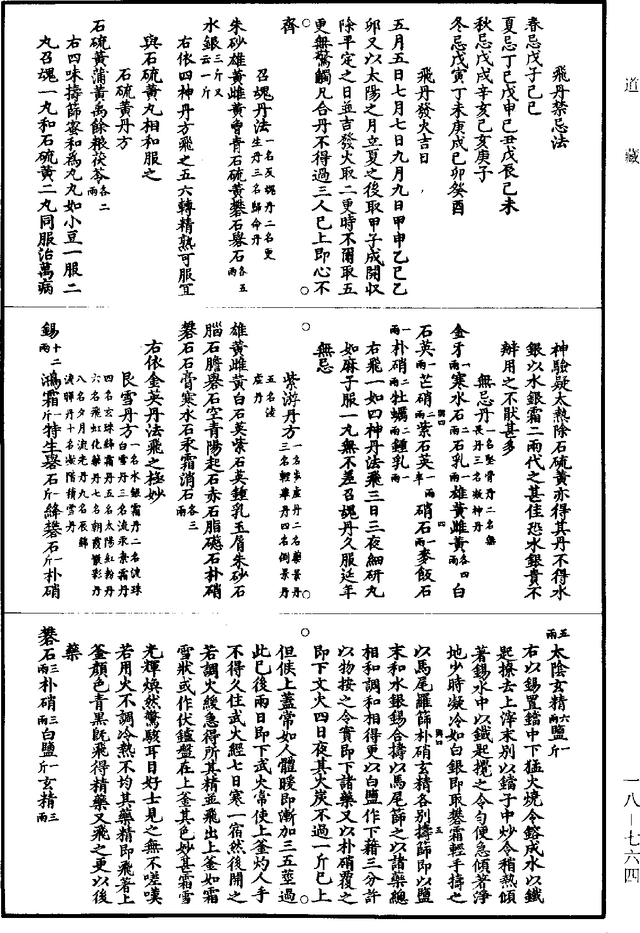 道藏
飛丹禁忌法
春忌戊子己巳
夏忌丁巳戊申己丑戊辰己未
秋忌戊戌辛亥己亥庚子
冬忌戊寅丁未庚戌己卯癸酉
飛丹發火吉日
五月五日七月七日九月九日甲申乙巳乙
卯又以太陽之月立夏之後取甲子成開收
除平定之日並吉發火取二更時不爾取五
更無驚觸凡合丹不得過三人已上即心不
齊
召魂丹法一名反魂丹二名更生丹三名歸命丹
朱砂雄黃雌黃曾青石硫黃礬石礜石各五兩
水銀三斤又云一斤
右依四神丹方飛之五六轉精熟可服宜
與石硫黃丸相和服之
石硫黃丹方
石硫黃蒲黃禹餘粮茯苓各二兩
右四味擣篩蜜和為丸丸如小豆一服二
丸召魂一丸和石硫黃二丸同服治萬病
神驗疑太熱除石硫黃亦得其丹不得水
銀以水銀霜二兩代之甚佳恐水銀貴不
辦用之不猒甚多
無忌丹一名堅骨丹二名無畏丹三名凝神丹
金牙一兩寒水石一兩石乳二兩雄黃雌黃各四兩白
石英一兩芒硝二兩紫石英一兩硝石四兩麥飯石
一兩朴硝二兩牡蠣二兩鍾乳一兩
右飛一如四神丹法飛三日三夜細研丸
如麻子服一丸無不差召魂丹久服延年
無忌
紫游丹方一名步虛丹二名藥景丹三名輕舉丹四名倒景丹五名凌虛丹
雄黃雌黃白石英紫石英鍾乳玉屑朱砂石
腦石膽礜石空青陽起石赤石脂磁石朴硝
礬石石膏寒水石汞霜消石各三兩
右依金英丹法飛之極妙
艮雪丹方一名水銀霜丹二名流珠白雪丹三名流汞素霜丹四名玄珠絳霜丹五名太陽紅粉丹六名飛虹化藥丹七名朝霞散彩丹八名夕月流光丹九名辰錦流暉丹十名凝階積雪丹
錫十二兩澒霜一斤特生礜石一斤絳礬石一斤朴硝
五兩太陰玄精六兩鹽一斤
右以錫置鐺中下猛火燒令鎔成水以鐵
匙掠去上滓末別以鐺子中炒令稍熱傾
著錫水中以鐵匙攪之令勻便急傾著淨
地少時凝冷如白銀即取礬霜輕手擣之
以馬尾羅篩朴硝玄精各別擣篩即以鹽
末和水銀錫合擣以馬尾篩之以諸藥總
相和調和相得更以白鹽作下藉三分許
以物按之令實即下諸藥又以朴硝覆之
即下文火四日夜其火炭不過一斤已上
但候上蓋常如人體暖即漸加三五莖過
此已後兩日即下武火常使上釜灼人手
不得久住武火經七日寒一宿然後開之
若調火緩急得所其精並飛出上釜如霜
雪狀或作伏鑪盤在上釜其色妙甚霜雪
光輝煥然驚駭耳目好士見之無不嗟嘆
若用火不調冷熱不均其藥精即飛著上
釜顏色青黑既飛得精藥又飛之更以後
藥
礬石三兩朴硝三兩白鹽一斤玄精三兩
一八－七六四